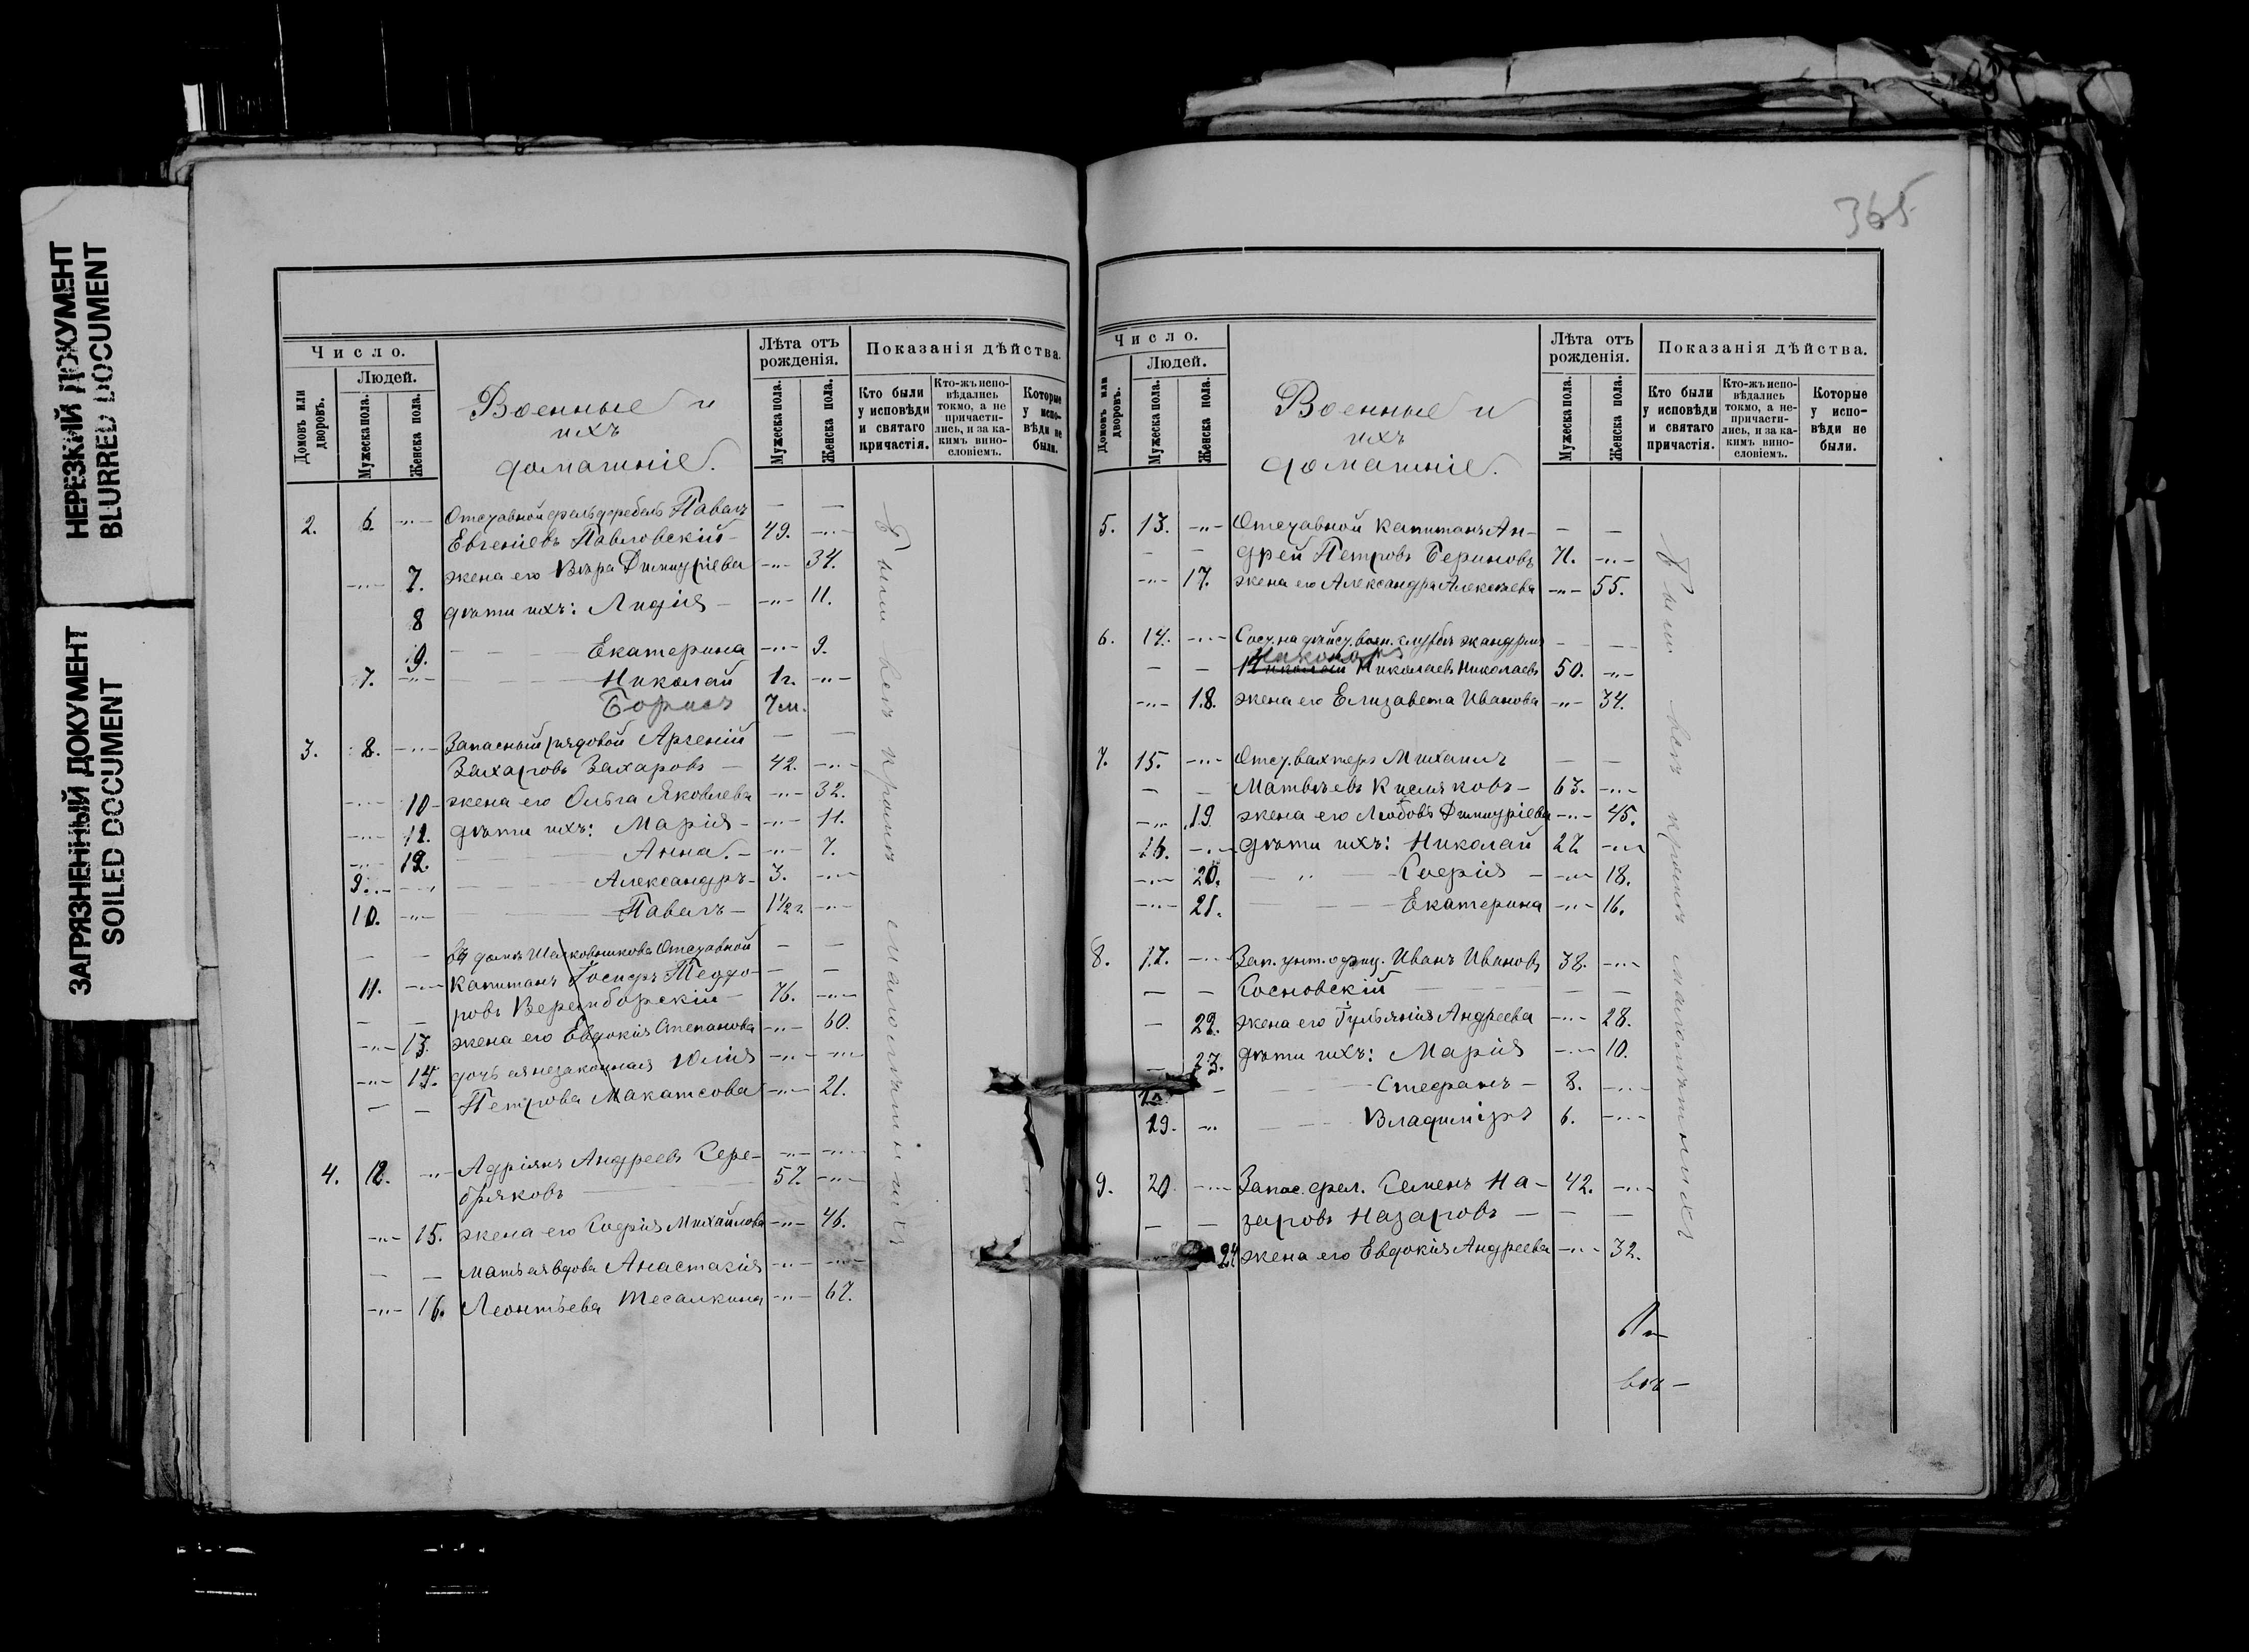 НЕРЕЗКИЙ ДОКУМЕНТ
BLURRED DOCUMENT
ЗАГРЯЗНЕННЫЙ ДОКУМЕНТ
SOILED DOCUMENT
Число.
Людей.
Домовъ или дворовъ.
Мужеска пола.
Женска пола.
Военные и
ихъ
домашніе.
Лѣта отъ рожденія.
Мужеска пола.
Женска пола.
Показанія дѣйства.
Кто были у исповѣди и святаго причастія.
Кто-жъ исповѣдались токмо, а не причастились, и за какимъ винословіемъ.
Которые у исповѣди не были.
2. 6. -"- Отставной фельдфебель Павелъ — —
Евгеніевъ Павловскій - 49. -"-
-"- 7. жена его Вѣра Димитріева -"- 34.
8 дѣти ихъ: Лидія - -"- 11.
9. Екатерина -"- 9.
7. -"- Николай 1г. -"-
Борисъ 7м.
3. 8. -"- Запасный рядовой Арсеній — —
Захаровъ Захаровъ - 42. -"-
-"- 10 - жена его Ольга Яковлева -"- 32.
-"- 11. дѣти ихъ: Марія - -"- 11.
-"- 12. Анна. - -"- 7.
9. -"- Александръ - 3. -"-
10. -"- Павелъ - 1½ г. -"-
— — въ домѣ Отставной — —
11. -"- Капитанъ Іосифъ Теодо- — —
— — ровъ - 76. -"-
-"- 13. жена его Евдокія Степанова -"- 60.
-"- 14. дочь ея незаконная Юлія -"- -"-
— — Петрова Макатсова -"- 21.
4. 12. -"- Адріанъ Андреевъ Сере- -"- -"-
бряковъ 57. -"-
-"- 15. жена его Софія Михайлова -"- 46.
— — мать ея вдова Анастасія -"- -"-
-"- 16. Леонтьева Тесалкина -"- 67.
Были всѣ кромѣ малолѣтнихъ
365
Число.
Людей.
Домовъ или дворовъ.
Мужеска пола.
Женска пола.
Военные и
ихъ
домашніе.
Лѣта отъ рожденія.
Мужеска пола.
Женска пола.
Показанія дѣйства.
Кто были у исповѣди и святаго причастія.
Кто-жъ исповѣдались токмо, а не-причастились, и за какимъ винословіемъ.
Которые у исповѣди не были.
5. 13. -"- Отставной капитанъ Ан- — —
— — дрей Петровъ Бериновъ 71. -"-
-"- 17. жена его Александра Алексѣева -"- 55.
6. 14. -"- Сост. на дѣйст. воен. службѣ жандармъ — —
Никоноръ
— — Николаевъ Николаевъ 50. -"-
-"- 18. жена его Елизавета Иванова -"- 34.
7. 15. -"- Отст. вахтеръ Михаилъ — —
— — Матвѣевъ Кисляковъ - 63. -"-
-"- 19. жена его Любовь Димитріева -"- 45.
16. -"- дѣти ихъ: Николай 22 -"-
-"- 20. Софія - -"- 18.
-"- 21. Екатерина -"- 16.
8. 17. -"- Зап. унт. офиц. Иванъ Ивановъ 38. -"-
— — Сосновскій — —
— 22. жена его Іуліанія Андреева -"- 28.
— 23. дѣти ихъ: Марія -"- 10.
— Стефанъ - 8. -"-
19. -"- Владиміръ 6. -"-
9. 20 -"- Запас. фел. Семенъ На- 42. -"-
— — заровъ Назаровъ — — —
-"- 24 жена его Евдокія Андреева -"- 32.
Были всѣ кромѣ малолѣтнихъ